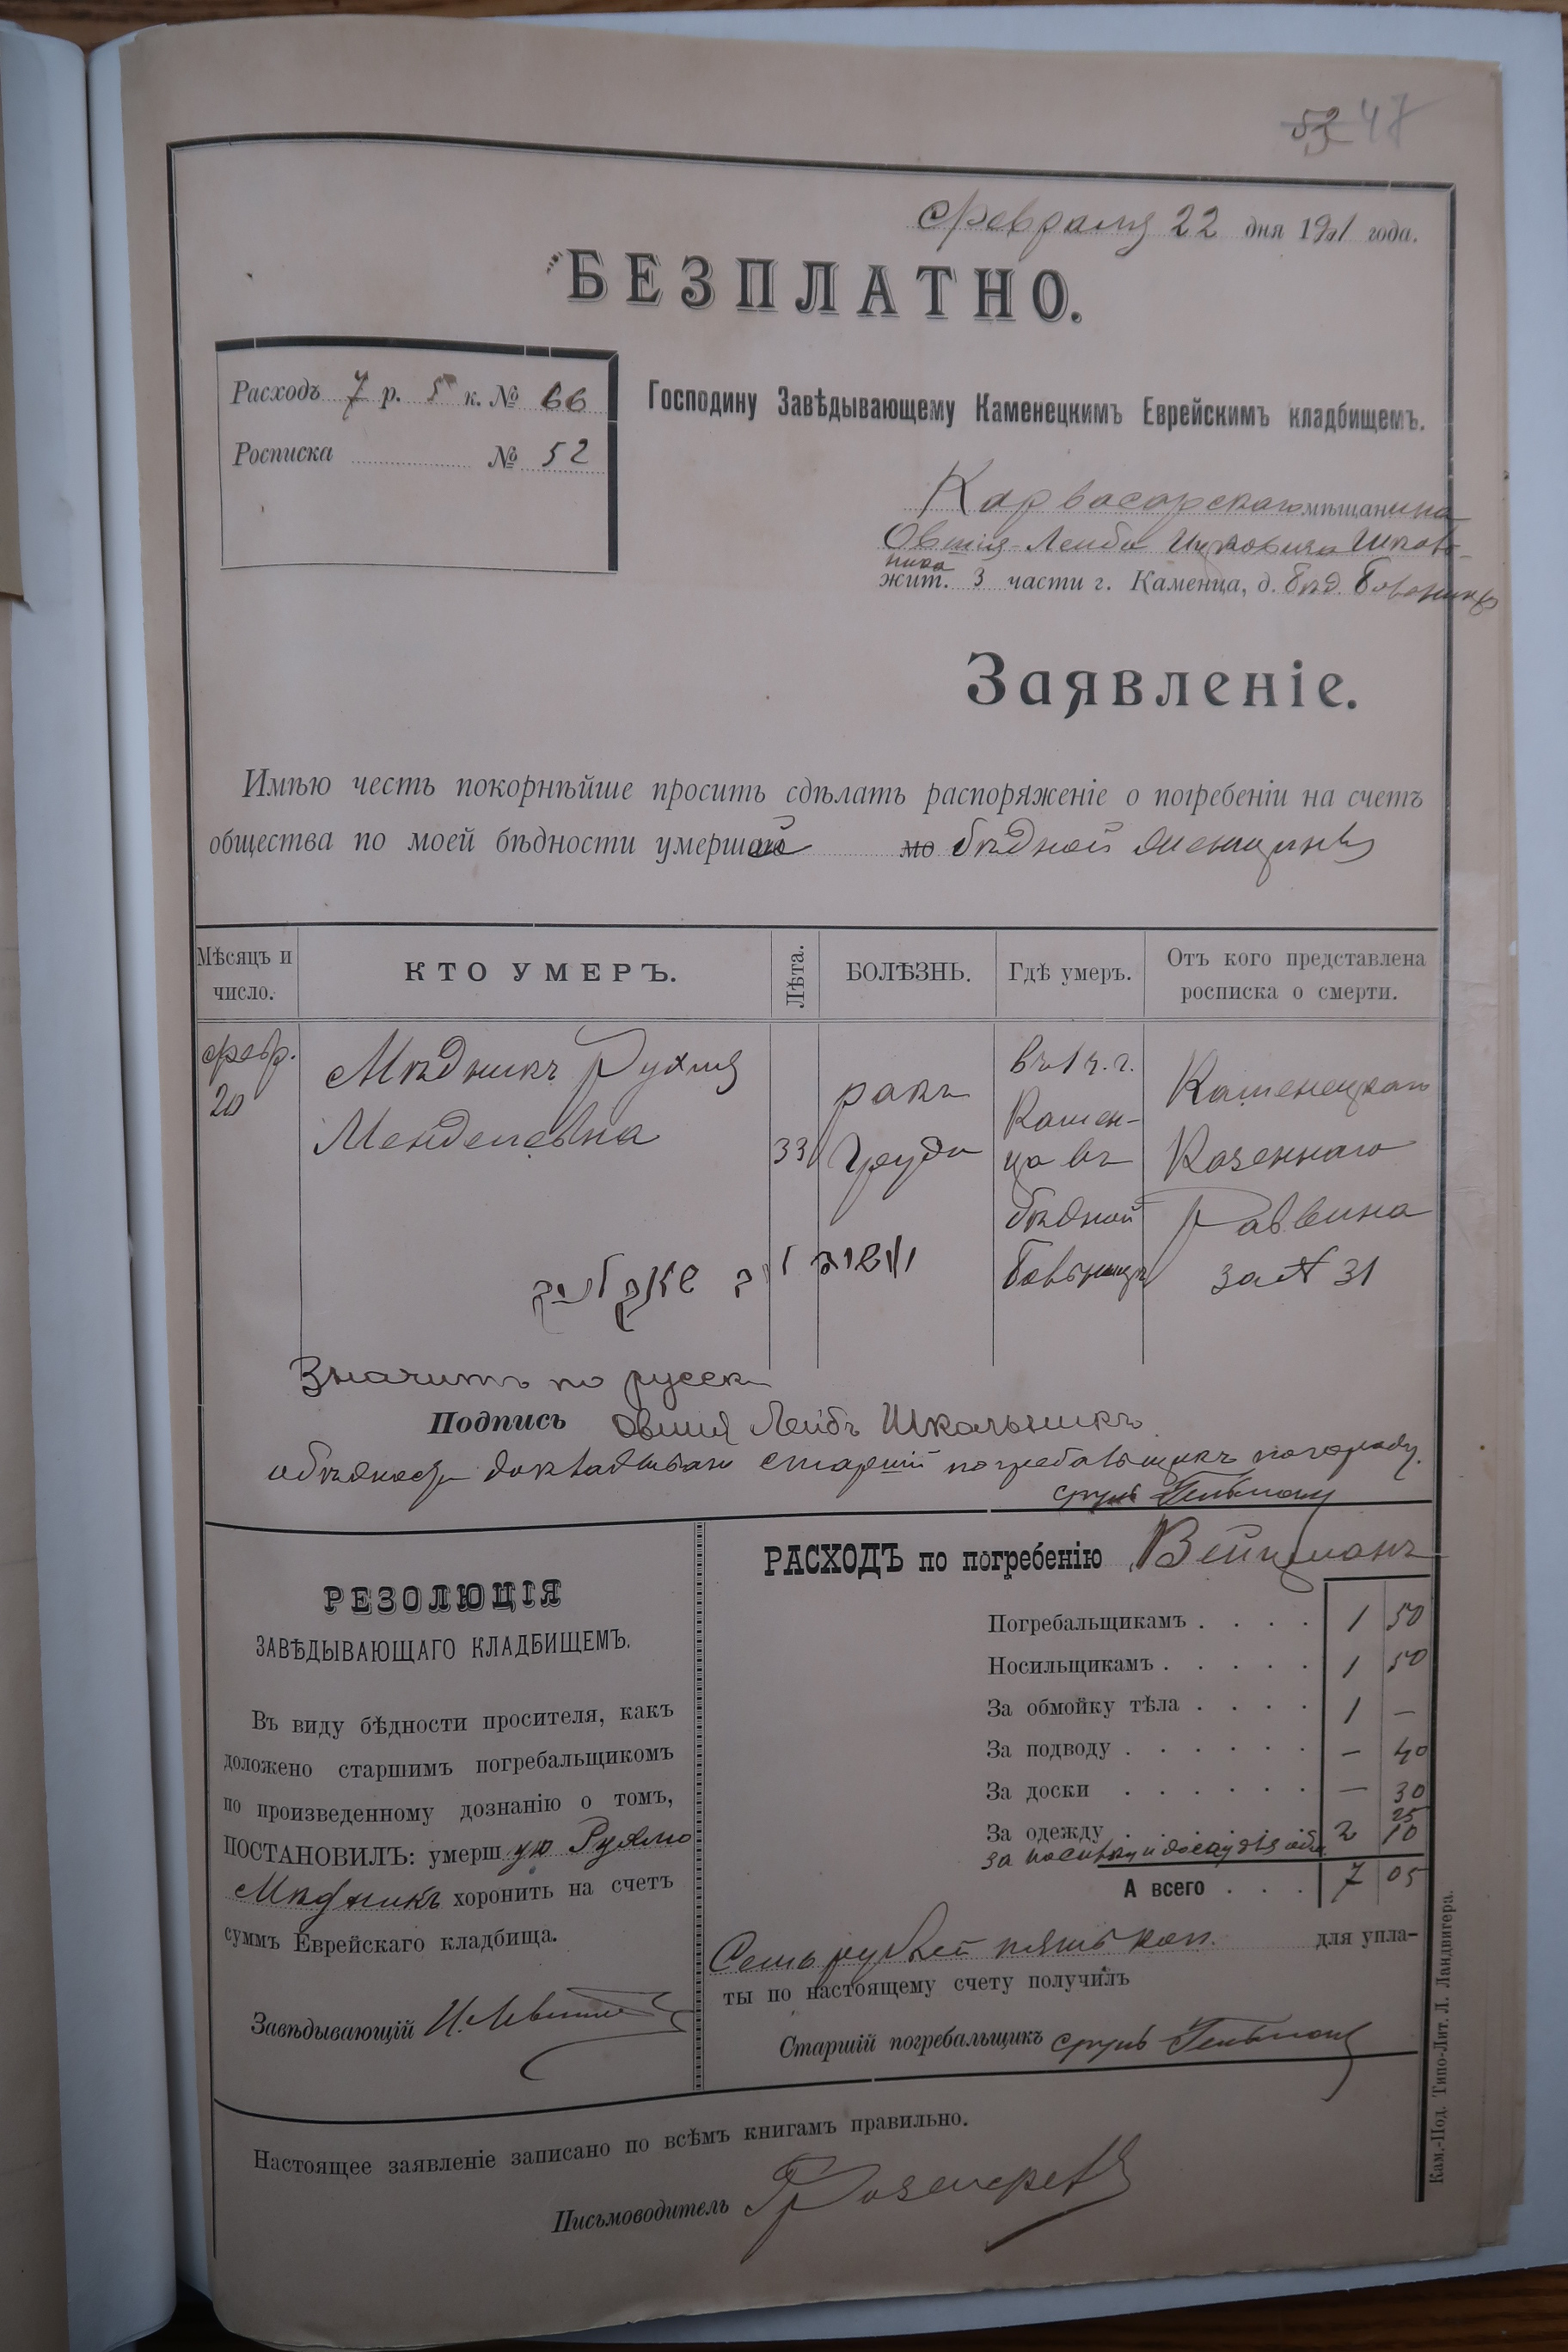 53 47
Февраля 22 дня 1901 года.
БЕЗПЛАТНО.
Расходъ 7 р. 5 к. № 66
Росписка № 52
Господину Завѣдывающему Каменецкимъ Еврейскимъ кладбищемъ.
Карвасарскаго мѣщанина
Овшія-Лейба Ицковича Школь-
ника
жит. 3 части г. Каменца, д. бѣд.
Заявленіе.
Имѣю честь покорнѣйше просить сдѣлать распоряженіе о погребеніи на счетъ
общества по моей бѣдности умершей мо бѣдной женщины
Мѣсяцъ и число.
КТО УМЕРЪ.
Лѣта.
БОЛѢЗНЬ.
Гдѣ умеръ.
Отъ кого представлена росписка о смерти.
февр. 20
Мѣдникъ Рухля
Менделевна
33
ракъ
груди
въ 1 ч. г.
Камен-
ца въ
бѣдной
Каменецкаго
Казеннаго
Раввина
за № 31
Значитъ по русск
Подпись Овшія Лейбъ Школьникъ
о бѣдности старшій погребальщикъ
РЕЗОЛЮЦІЯ
ЗАВѢДЫВАЮЩАГО КЛАДБИЩЕМЪ.
Въ виду бѣдности просителя, какъ
доложено старшимъ погребальщикомъ
по произведенному дознанію о томъ,
ПОСТАНОВИЛЪ: умершую Рухлю
Мѣдникъ хоронить на счетъ
суммъ Еврейскаго кладбища.
Завѣдывающій
РАСХОДЪ по погребенію Вейцманъ
Погребальщикамъ . . . . 1 50
Носильщикамъ . . . . . 1 50
За обмойку тѣла . . . . 1 —
За подводу . . . . . . — 40
За доски . . . . . . — 30
25
За одежду 2 10
за
А всего . . . 7 05
Семь рублей пять коп. для упла-
ты по настоящему счету получилъ
Старшій погребальщикъ
Настоящее заявленіе записано по всѣмъ книгамъ правильно.
Письмоводитель
Кам.-Под. Типо-Лит. Л. Ландвигера.